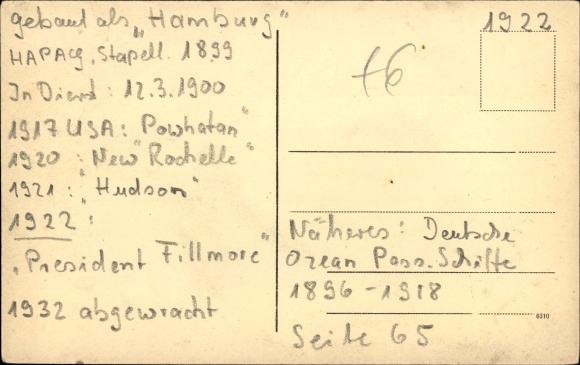 gebaut als „Hamburg"
HAPAG, Stapell. 1899
In Dienst: 12.3.1900
1917 USA: Powhatan"
1920 : New "Rochelle"
1921 : "Hudson"
1922 :
„President Fillmore"
1932 abgewrackt
1922
Näheres: Deutsche
Ozean Pass. Schiffe
1896-1918
Seite 65
6310